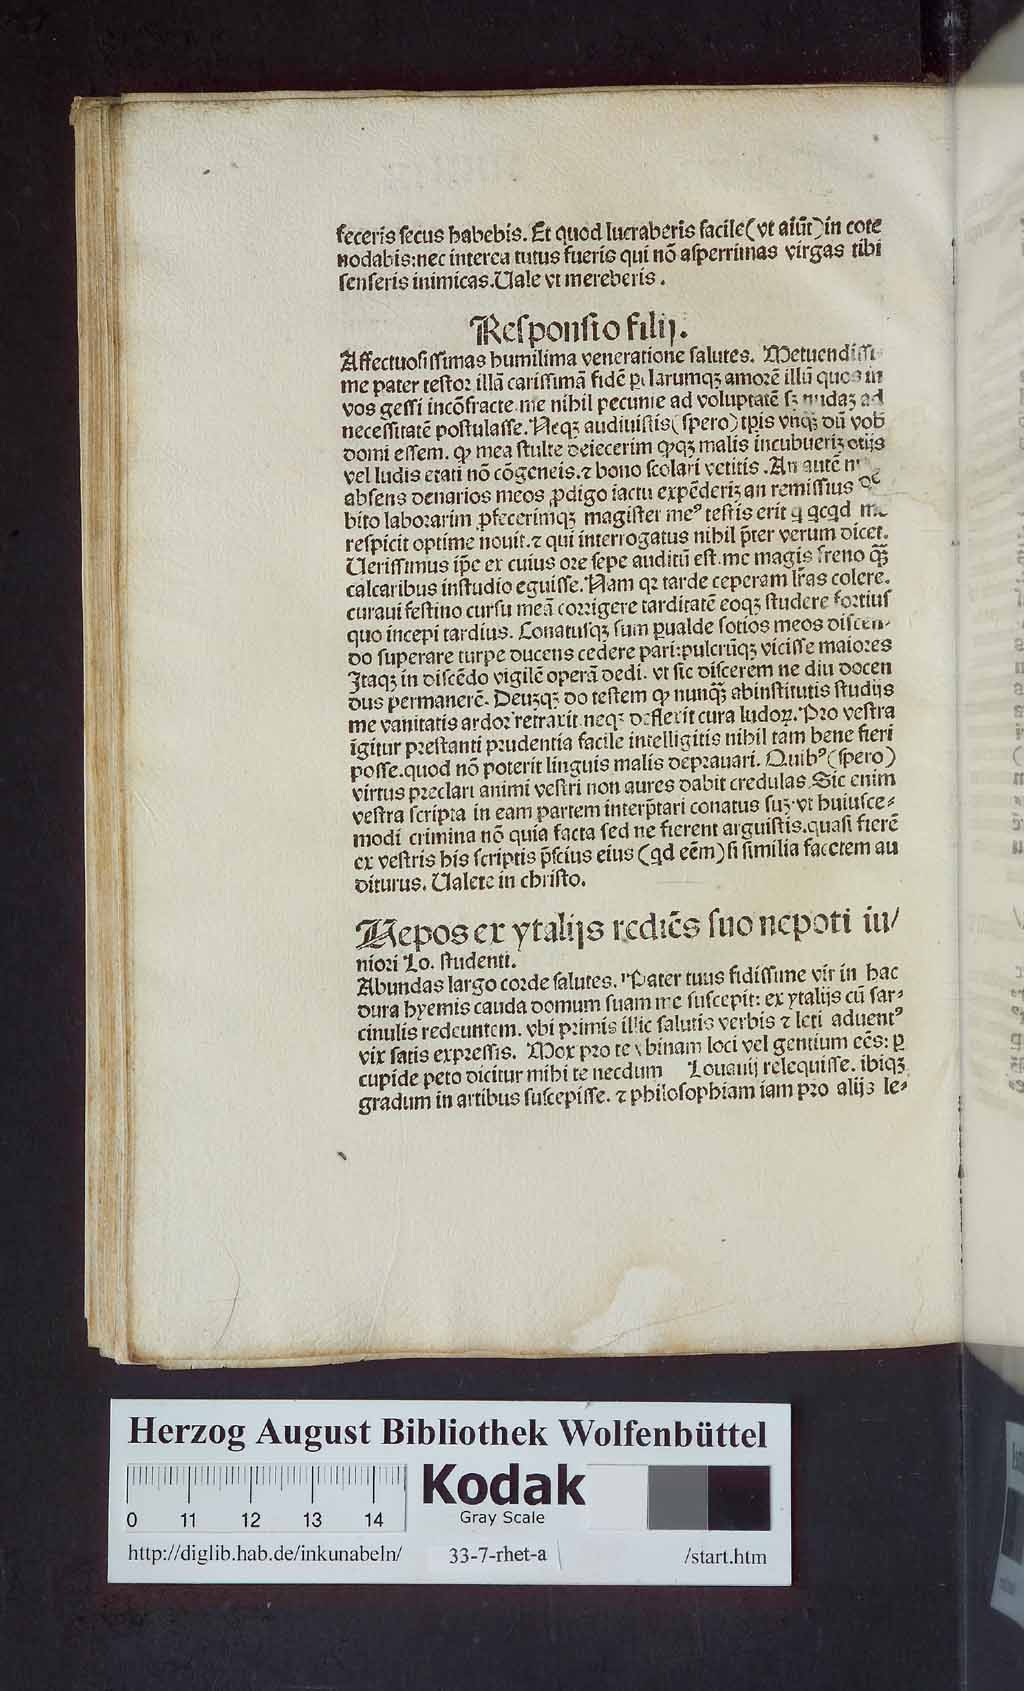 feceris secus habebis. Et quod lucraberis facile (vt aiūt) in cote
nodabis: nec interea tutus fueris qui nō asperrimas virgas tibi
senseris inimicas. Uale vt mereberis.
Responsio filij.
Affectuosissimas humilima veneratione salutes. Metuendissi
me pater testor illā carissimā fidē amorē illū quos in
vos gessi incōfracte me nihil pecunie ad voluptatē sꝫ nudaꝫ ad
necessitatē postulasse. Neqꝫ audiuistis (spero) tp̄is vnqꝫ dū vob̄
domi essem. ꝙ mea stulte deiecerim ꝙqꝫ malis incubueriꝫ otijs
vel ludis etati nō cōgeneis. ⁊ bono scolari vetitis. An autē
absens denarios meos ꝓdigo iactu expēderiꝫ an remissius de
bito laborarim ꝓfecerimqꝫ magister meꝰ testis erit q qcqd me
respicit optime nouit. ⁊ qui interrogatus nihil p̄ter verum dicet.
Uerissimus ip̄e ex cuius ore sepe auditū est. me magis freno qꝫ̄
calcaribus instudio eguisse. Nam qꝛ tarde ceperam lr̄as colere.
curaui festino cursu meā corrigere tarditatē eoqꝫ studere fortius
quo incepi tardius. Conatusqꝫ sum ꝑualde sotios meos discen-
do superare turpe ducens cedere pari: pulcrūqꝫ vicisse maiores
Itaqꝫ in discēdo vigilē operā dedi. vt sic discerem ne diu docen
dus permanerē. Deuꝫqꝫ do testem ꝙ nunqꝫ̄ abinstitutis studijs
me vanitatis ardor retraxit neqꝫ deflexit cura ludoꝝ. Pro vestra
igitur prestanti prudentia facile intelligitis nihil tam bene fieri
posse. quod nō poterit linguis malis deprauari. Quibꝰ (spero)
virtus preclari animi vestri non aures dabit credulas. Sic enim
vestra scripta in eam partem interp̄tari conatus suꝫ. vt huiusce-
modi crimina nō quia facta sed ne fierent arguistis. quasi fierē
ex vestris his scriptis p̄scius eius (qd eēm) si similia facerem au
diturus. Ualete in christo.
Nepos ex ytalijs rediēs suo nepoti iu/
niori Lo. studenti.
Abundas largo corde salutes. Pater tuus fidissime vir in hac
dura hyemis cauda domum suam me suscepit: ex ytalijs cū sar-
cinulis redeuntem. vbi primis illic salutis verbis ⁊ leti aduentꝰ
vix satis expressis. Mox pro te vbinam loci vel gentium eēs: ꝑ
cupide peto dicitur mihi te necdum Louanij relequisse. ibiqꝫ
gradum in artibus suscepisse. ⁊ philosophiam iam pro alijs le-
Herzog August Bibliothek Wolfenbüttel
Kodak
Gray Scale
0 11 12 13 14
http://diglib.hab.de/inkunabeln/ 33-7-rhet-a /start.htm